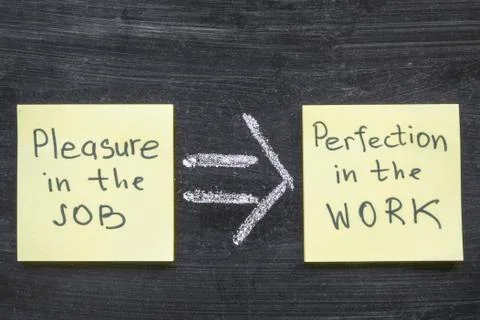 Pleasure
in the
JOB
Perfection
in the
WORK